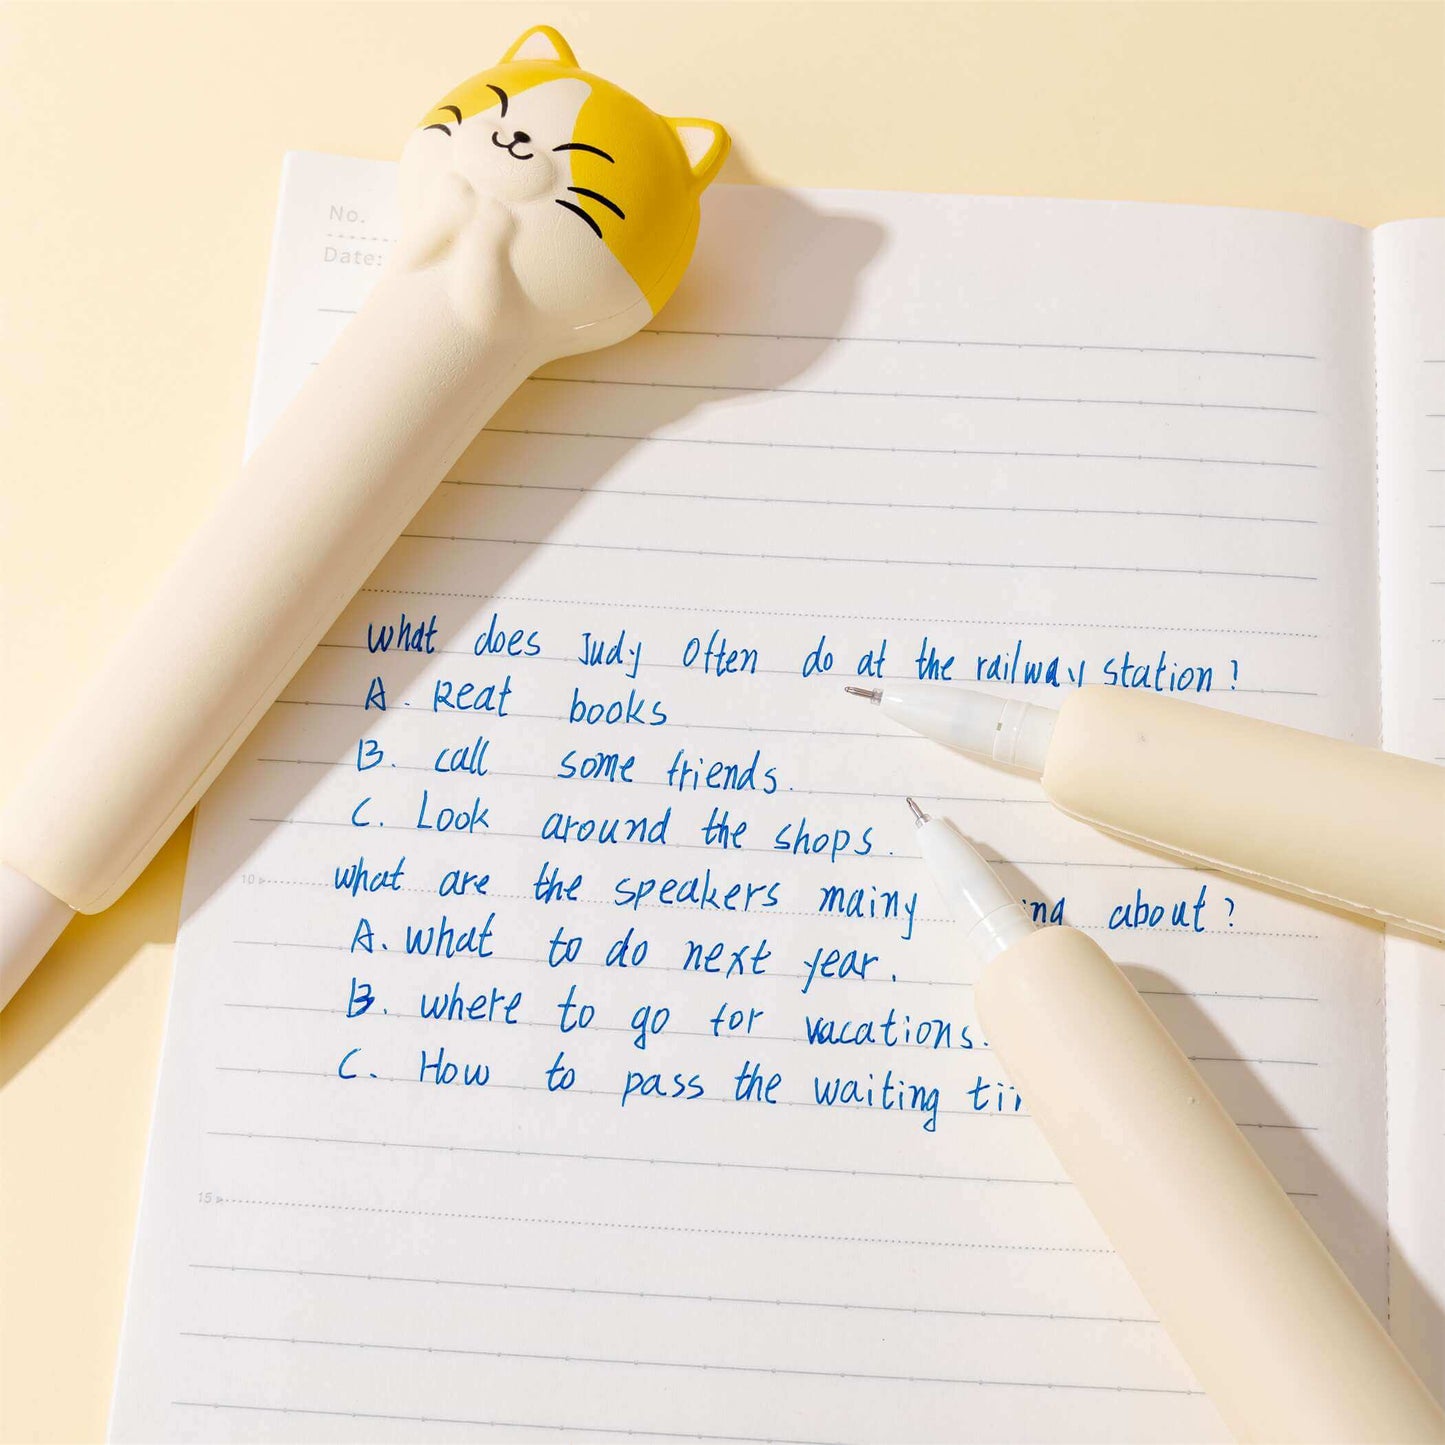 No.
Date:
What does Judy Often do at the railway station?
A. Reat books
B. call some friends.
C. Look around the shops.
10
what are the speakers mainy about?
A. what to do next year.
B. where to go for vacations.
C. How to pass the waiting
15